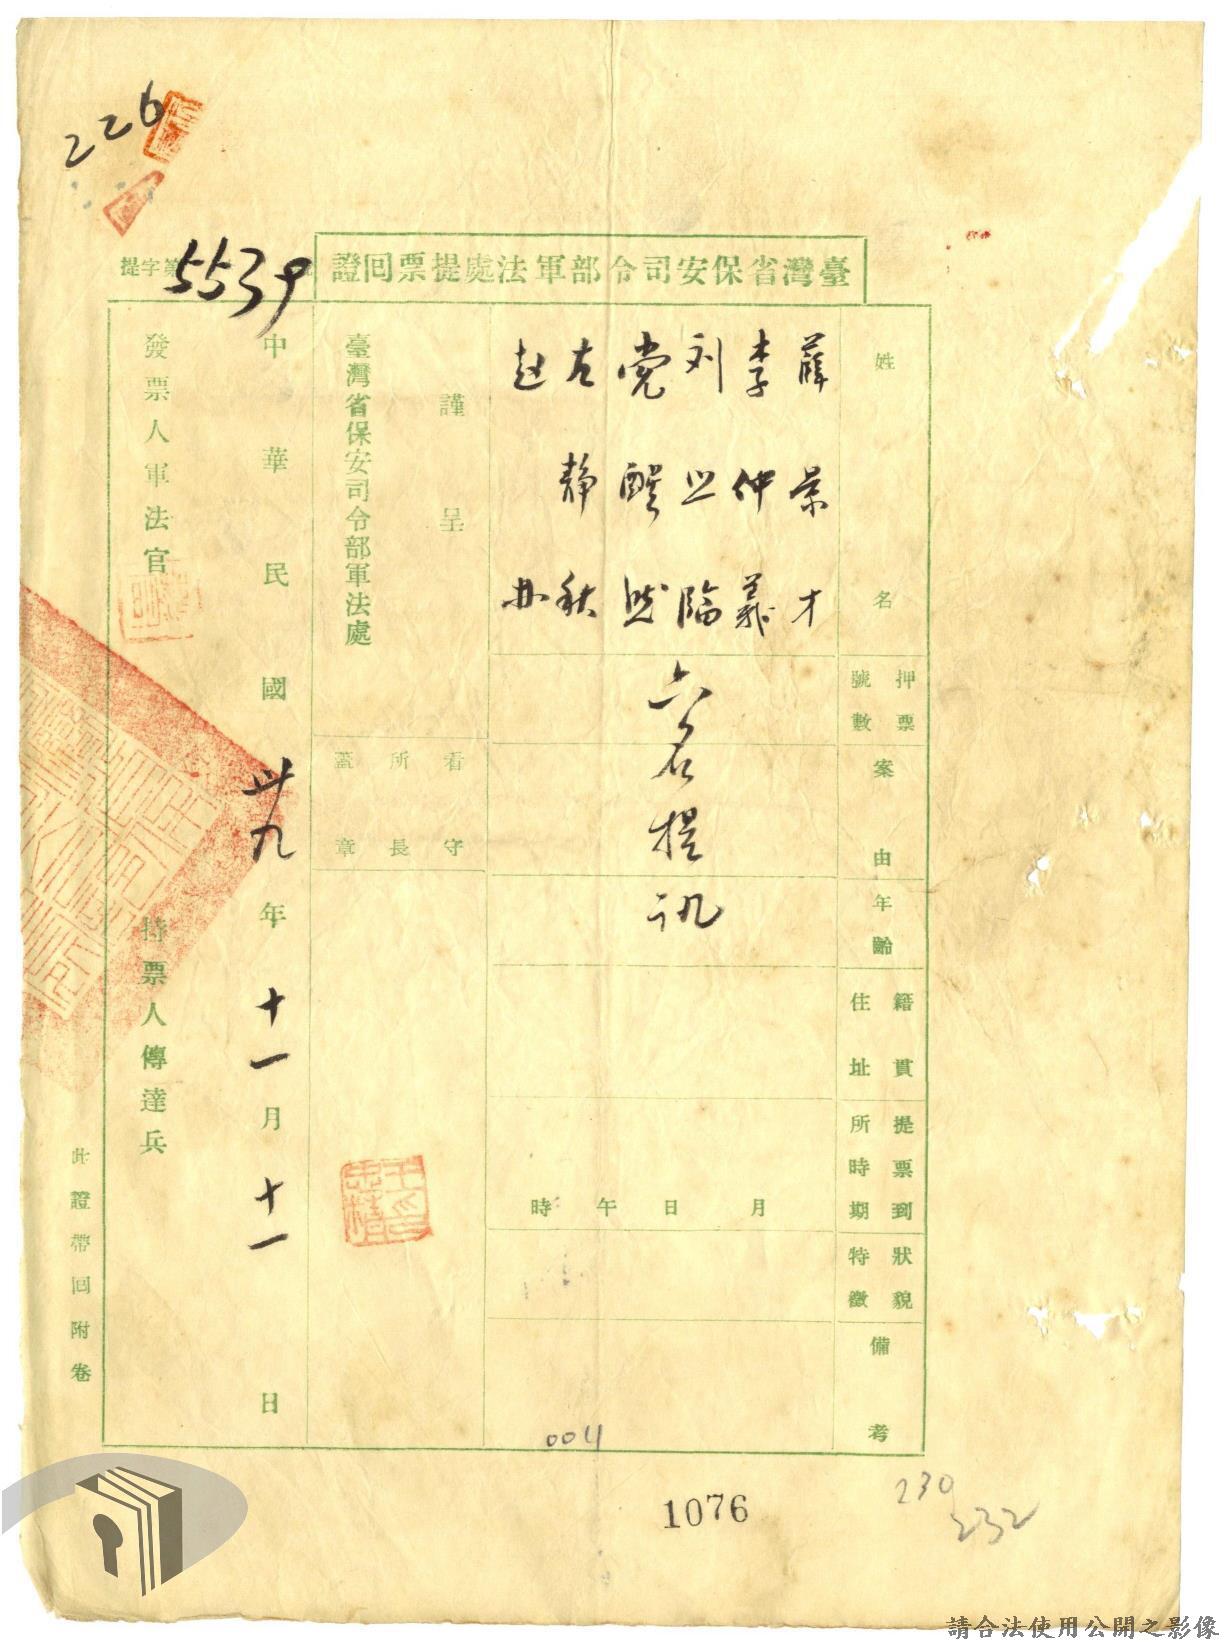 226
臺灣省保安司令部軍法處提票回證
提字第5539號
姓名
薛景才
李仲義
刘之臨
党醒然
左静秋
赵
六名提訊
押票號數
案由
年齡
籍貫住址
提票到所時期
月日午時
狀貌特徵
備考
謹呈
臺灣省保安司令部軍法處
看守所長蓋章
中華民國卅九年十一月十一日
發票人軍法官
持票人傳達兵
此證帶回附卷
0011
1076
230
232
請合法使用公開之影像